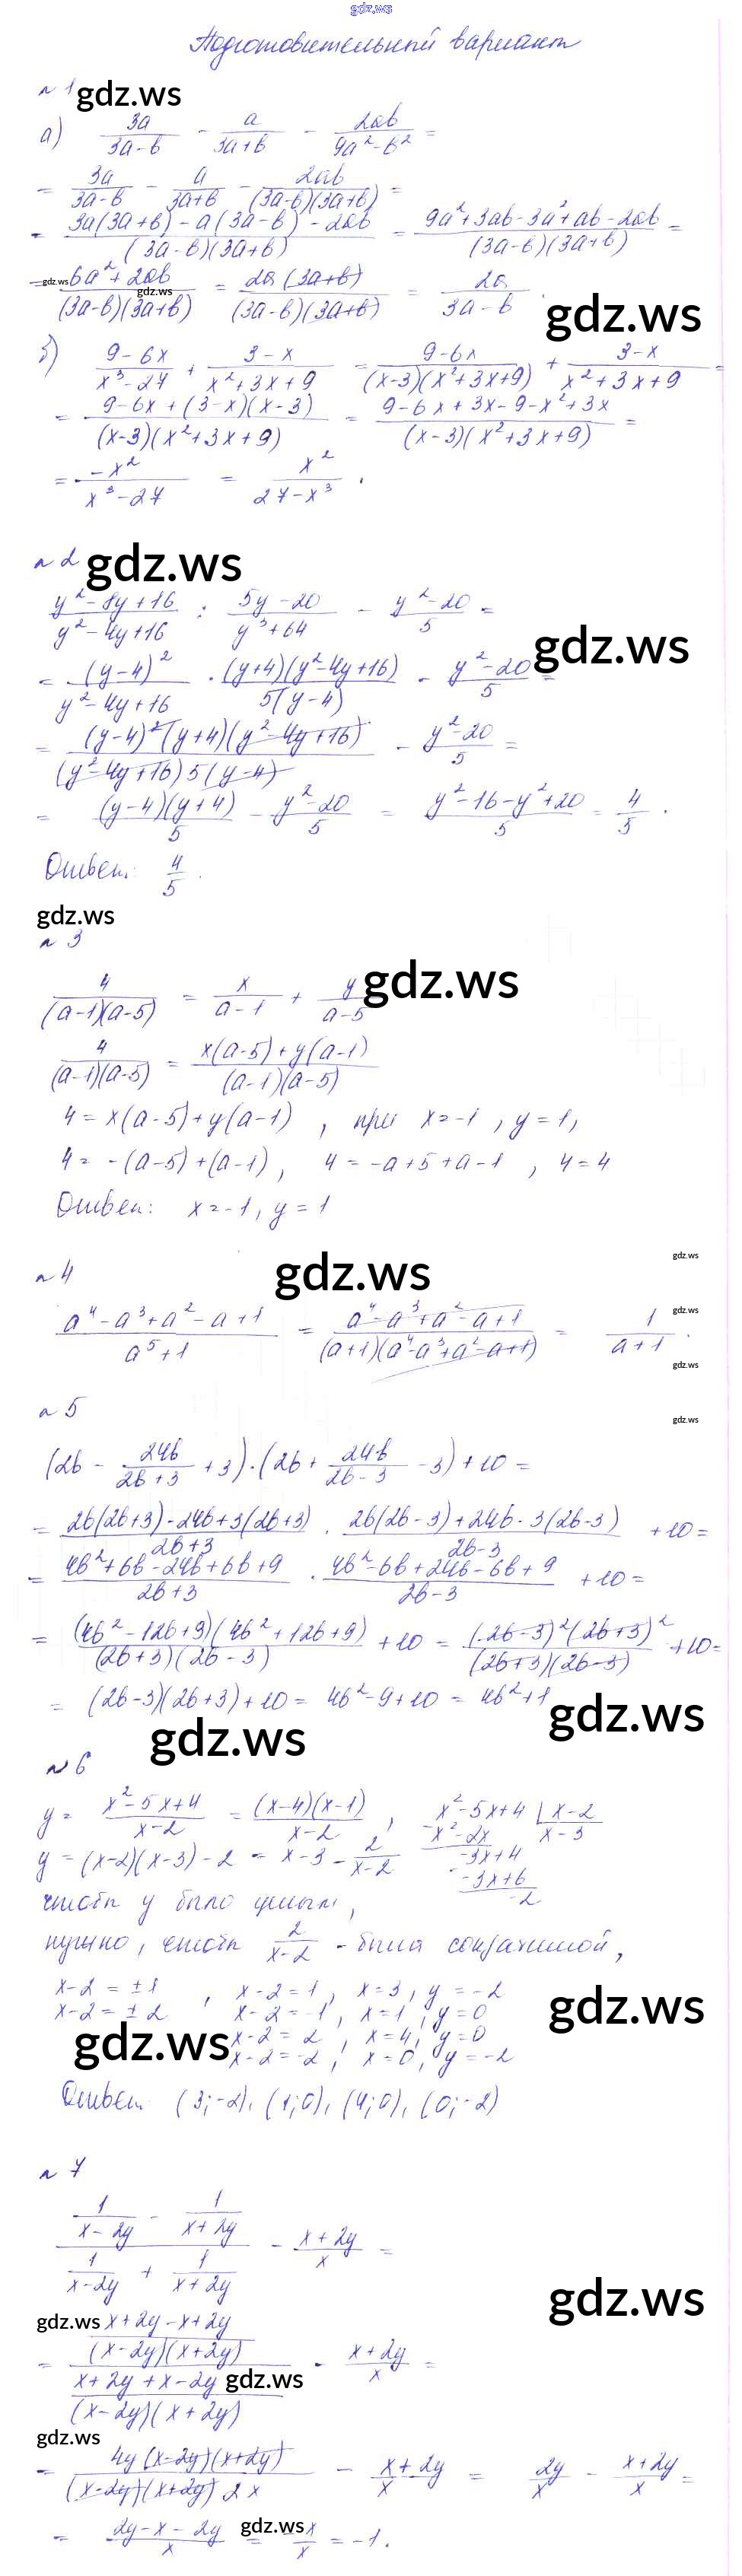 gdz.ws
Подготовительный вариант
n 1 gdz.ws
а) 3a/(3a-b) - a/(3a+b) - 2ab/(9a²-b²) =
= 3a/(3a-b) - a/(3a+b) - 2ab/((3a-b)(3a+b)) =
= (3a(3a+b) - a(3a-b) - 2ab)/((3a-b)(3a+b)) = (9a²+3ab-3a²+ab-2ab)/((3a-b)(3a+b)) =
= gdz.ws (6a²+2ab)/((3a-b)(3a+b)) gdz.ws = 2a(3a+b)/((3a-b)(3a+b)) = 2a/(3a-b). gdz.ws
б) (9-6x)/(x³-27) + (3-x)/(x²+3x+9) = (9-6x)/((x-3)(x²+3x+9)) + (3-x)/(x²+3x+9) =
= (9-6x+(3-x)(x-3))/((x-3)(x²+3x+9)) = (9-6x+3x-9-x²+3x)/((x-3)(x²+3x+9)) =
= -x²/(x³-27) = x²/(27-x³).
n 2 gdz.ws
(y²-8y+16)/(y²-4y+16) : (5y-20)/(y³+64) - (y²-20)/5 =
gdz.ws
= (y-4)²/(y²-4y+16) · (y+4)(y²-4y+16)/(5(y-4)) - (y²-20)/5 =
= (y-4)²(y+4)(y²-4y+16)/((y²-4y+16)5(y-4)) - (y²-20)/5 =
= (y-4)(y+4)/5 - (y²-20)/5 = (y²-16-y²+20)/5 = 4/5.
Ответ: 4/5.
gdz.ws
n 3
4/((a-1)(a-5)) = x/(a-1) + y/(a-5) gdz.ws
4/((a-1)(a-5)) = (x(a-5)+y(a-1))/((a-1)(a-5))
4 = x(a-5)+y(a-1), при x=-1, y=1,
4 = -(a-5)+(a-1), 4 = -a+5+a-1, 4=4
Ответ: x=-1, y=1
gdz.ws
n 4 gdz.ws
gdz.ws
(a⁴-a³+a²-a+1)/(a⁵+1) = (a⁴-a³+a²-a+1)/((a+1)(a⁴-a³+a²-a+1)) = 1/(a+1).
gdz.ws
n 5
gdz.ws
(2b - 24b/(2b+3) + 3)·(2b + 24b/(2b-3) - 3) + 10 =
= (2b(2b+3)-24b+3(2b+3))/(2b+3) · (2b(2b-3)+24b-3(2b-3))/(2b-3) + 10 =
= (4b²+6b-24b+6b+9)/(2b+3) · (4b²-6b+24b-6b+9)/(2b-3) + 10 =
= (4b²-12b+9)(4b²+12b+9)/((2b+3)(2b-3)) + 10 = (2b-3)²(2b+3)²/((2b+3)(2b-3)) + 10 =
= (2b-3)(2b+3)+10 = 4b²-9+10 = 4b²+1 gdz.ws
gdz.ws
n 6
y = (x²-5x+4)/(x-2) = (x-4)(x-1)/(x-2), x²-5x+4 | x-2
-x²-2x x-3
y = (x-2)(x-3)-2 = x-3 - 2/(x-2) -3x+4
-3x+6
-2
чтобы y было целым,
нужно, чтобы 2/(x-2) - была сократимой,
x-2 = ±1, x-2=1, x=3, y=-2
x-2 = ±2 x-2=-1, x=1, y=0 gdz.ws
gdz.ws x-2=2, x=4, y=0
x-2=-2, x=0, y=-2
Ответ: (3;-2), (1;0), (4;0), (0;-2)
n 7
(1/(x-2y) - 1/(x+2y))/(1/(x-2y) + 1/(x+2y)) - (x+2y)/x =
gdz.ws
gdz.ws
= ((x+2y-x+2y)/((x-2y)(x+2y)))/((x+2y+x-2y)/((x-2y)(x+2y))) - (x+2y)/x =
gdz.ws
gdz.ws
= 4y(x-2y)(x+2y)/((x-2y)(x+2y)2x) - (x+2y)/x = 2y/x - (x+2y)/x =
= (2y-x-2y)/x gdz.ws = -x/x = -1.